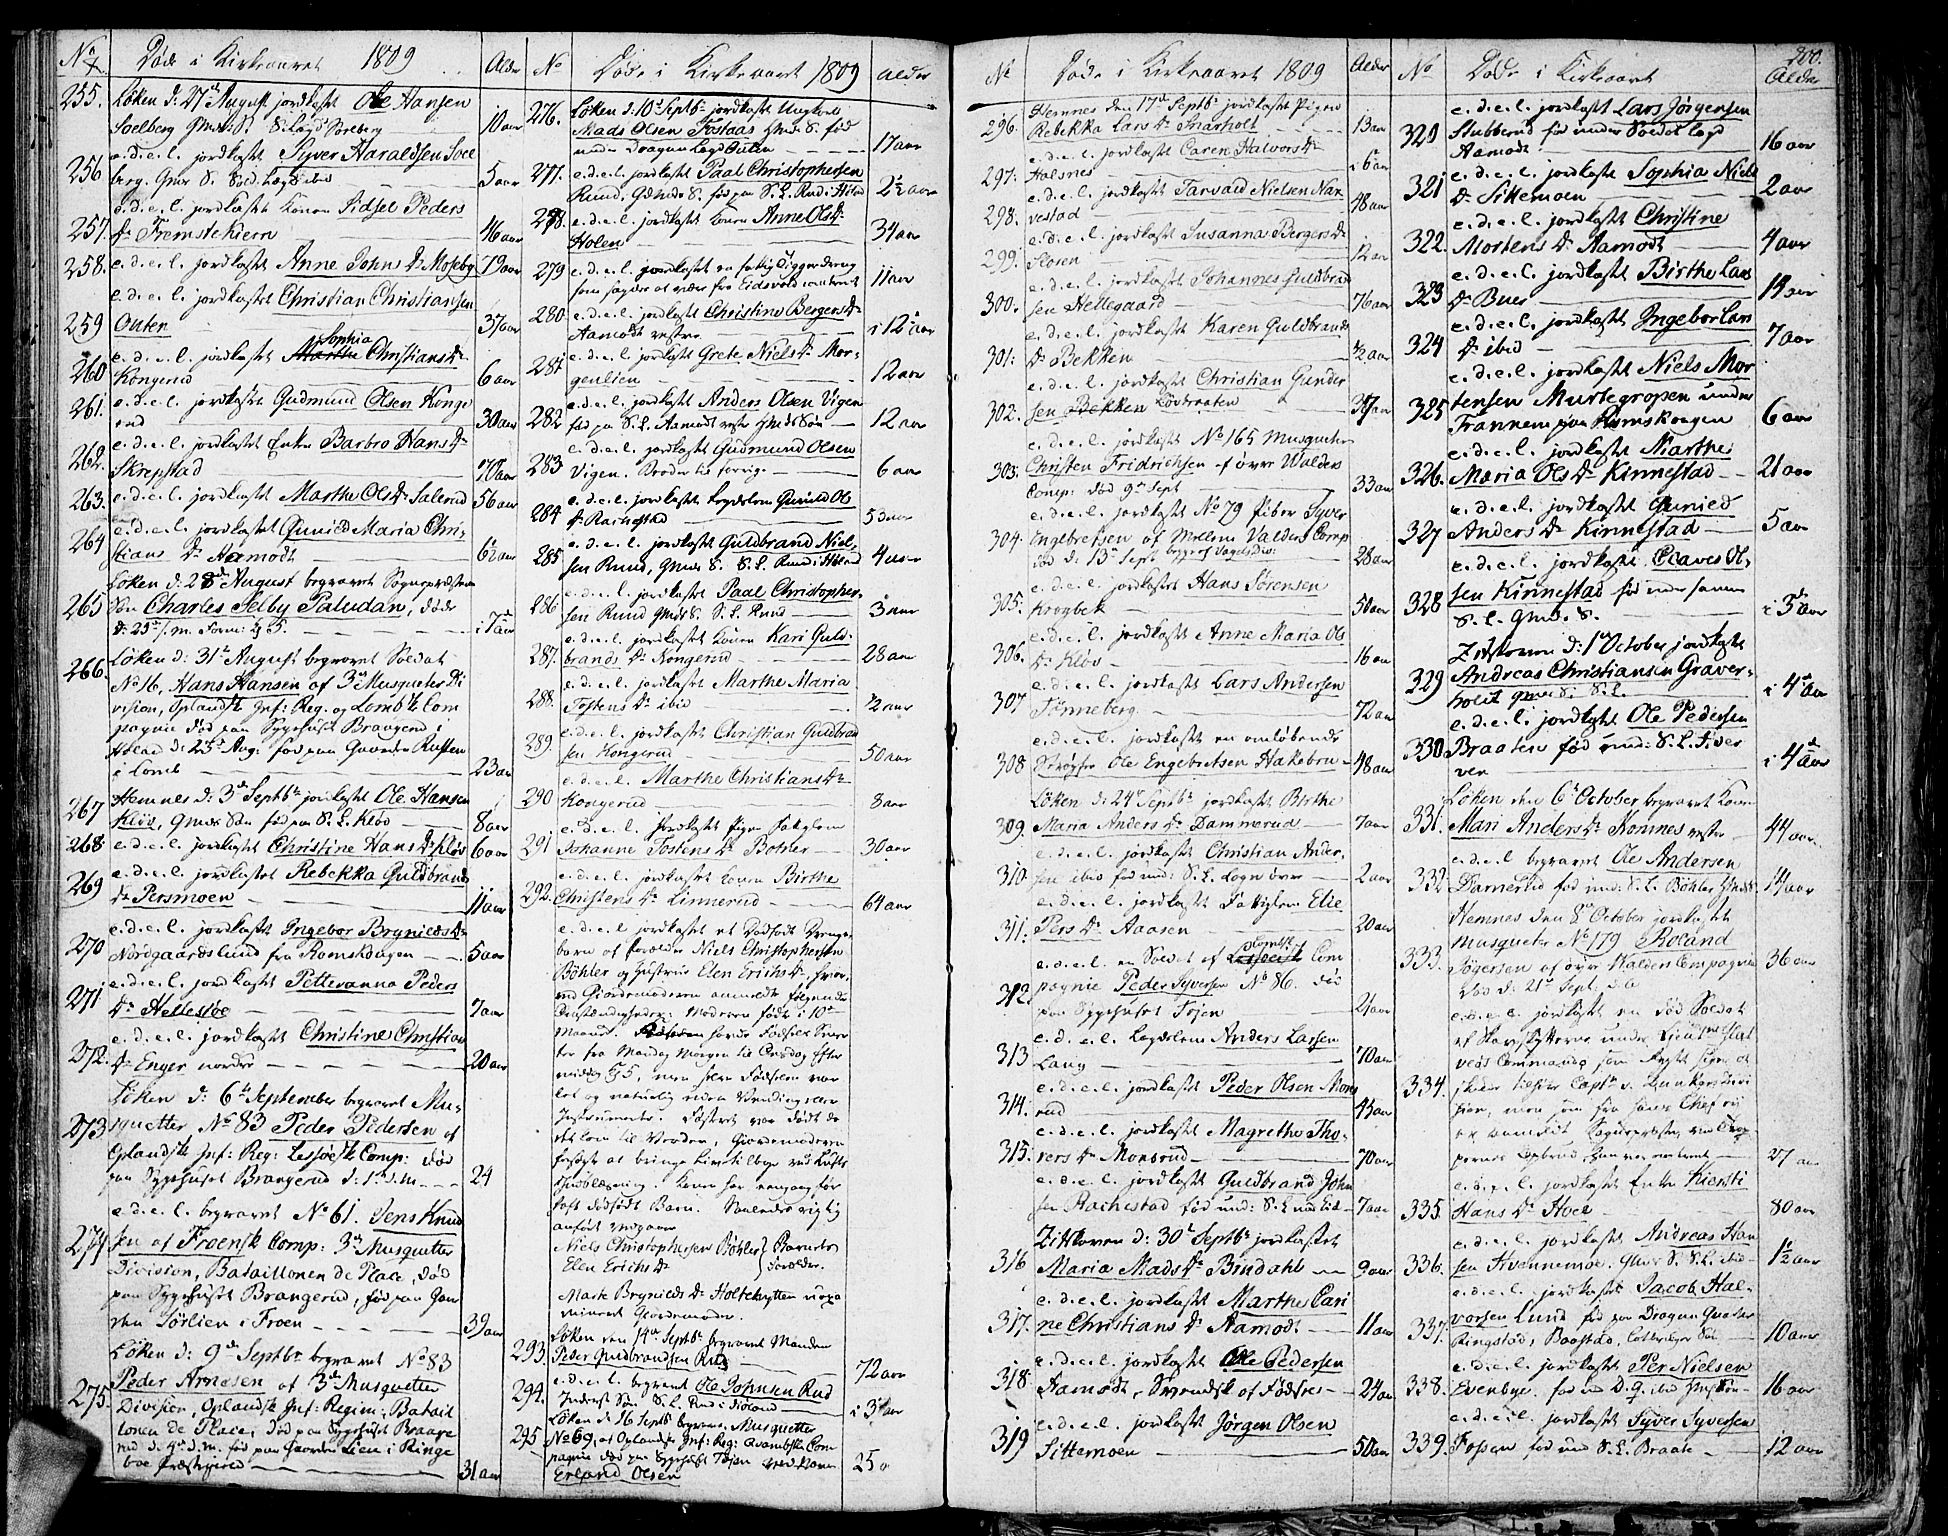 No Døde i Kirkeaaret 1809 Alder
255. Løken d: 27de August jordkastet Ole Hansen
Soelberg Gmds S. S. Lægd Soelberg 10 aar
256 e. d. e. l. jordkastet Syver Haraldsen Soel
berg. Gmds S. Sold. Lægd ibid 5 aar
257. e. d. e. l. jordkastet Konen Sidsel Peders
Dr Fremstekiern 46 aar
258. e. d. e. l. jordkastet Anne Johns Dr Moseby 79 aar
259 e. d. e. l. jordkastet Christian Christiansen
Outen 37 aar
260 e. d. e. l. jordkastet Sophia Christians Dr
Kongerud 6 aar
261. e. d. e. l. jordkastet Gudmund Olsen Konge
rud 30 aar
262. e. d. e. l. jordkastet Enken Barbro Hans Dr
Skrepstad 70 aar
263. e. d. e. l. jordkastet Marthe Ols Dr Salerud 56 aar
264 e. d. e. l. jordkastet Gunild Maria Chri-
stians Dr Aamodt 6½ aar
265 Løken d: 28de August begravet Sognepræstens
Søn Charles Selby Paludan, døde
d: 25de s. m. 7 aar
266. Løken d: 31te August begravet Soldat
No 16, Hans Hansen af 3de Musqueter Di
vision, Oplandsk Inf: Reg. og Lomsk Com
pagnie død paa Sygehuset Brangerud i
Høland d: 25de Aug: fød paa Gaarden Rusten
i Lomb 23 aar
267 Hemnes d: 3de Septbr jordkastet Ole Hansen
Kløv, Gmds Søn fød paa S. L. Kløv 8 aar
268 e. d. e. l. jordkastet Christine Hans Dr Kløv 6 aar
269 e. d. e. l. jordkastet Rebekka Guldbrands
Dr Persmoen 11 aar
270 e. d. e. l. jordkastet Ingebor Brynilds Dr
Nordgaardslund fra Romskougen 5 aar
271 e. d. e. l. jordkastet Pettevanna Peders
Dr Hellesiøe 7 aar
272. e. d. e. l. jordkastet Christine Christian
Dr Enger nordre 20 aar
273 Løken d: 6te September begravet Mu-
squetter No 83 Peder Pedersen af
Oplandsk Inf: Reg: Lessøesk Comp: død
paa Sygehuset Brangerud d: 1te s. m. 24
274 e. d. e. l. begravet No 61. Jens Knud
sen af Froensk Comp: 3de Musquetter
Division, Bataillonen de Place, død
paa Sygehuset Brangerud, fød paa Gaar
den Sørlien i Froen 39 aar
275. Løken d: 9de Septbr begravet No 83
Peder Arnesen af 3de Musquetter
Division, Oplandsk Inf: Regim:, Batail
lonen de Place, død paa Sygehuset Brange
rud d. 4de d. m. fød paa Gaarden Lien i Ringe
boe Præstegield 31 aar
No Døde i Kirkeaaret 1809 Alder
276. Løken d: 10de Septbr jordkastet Ungkarl
Mads Olsen Tostaas Gmds S. fød
under Dragon Lægd Outen 17 aar
277. e. d. e. l. jordkastet Paal Christophersen
Rund, Gmds S. fød paa S. L. Rud i Høland 2½ aar
278. e. d. e. l. jordkastet Konen Anne Ols Dr
Holen 34 aar
279 e. d. e. l. jordkastet en fattig Tiggerdreng
som sagdes at være fra Eidsvold 11 aar
280 e. d. e. l. jordkastet Christine Bergers Dr
Aamodt vestre i 12te aar
281 e. d. e. l. jordkastet Grete Niels Dr Mor-
genlien 12 aar
282 e. d. e. l. jordkastet Anders Olsen Vigen
fød paa S. L. Aamodt vestre Gmds Søn 12 aar
283 e. d. e. l. jordkastet Gudmund Olsen
Vigen. Broder til forrige 6 aar
284 e. d. e. l. jordkastet Gunild Ols
Dr Rakestad 53 aar
285 e. d. e. l. jordkastet Guldbrand Niel-
sen Rund, Gmds S. S. L. Rund i Høland 4 aar
286 e. d. e. l. jordkastet Paal Christopher-
sen Rund Gmds S. S. L. Rund 3 aar
287. e. d. e. l. jordkastet Konen Kari Guld-
brands Dr Kongerud 28 aar
288. e. d. e. l. jordkastet Marthe Maria
Tostens Dr ibid ½ aar
289. e. d. e. l. jordkastet Christian Guldbran
sen Kongerud 50 aar
290 e. d. e. l. Marthe Christians Dr
Kongerud 8 aar
291 e. d. e. l. jordkastet Pigen
Johanne Tostens Dr Bøhler 30 aar
292. e. d. e. l. jordkastet Konen Birthe
Christens Dr Linnerud 64 aar
e. d. e. l. jordkastet et Dødfødt Drenge
barn af Forældre Niels Christophersen
Bøhler og Hustrue Elen Erichs Dr, hvor
ved Giordemoderen anmeldte følgende
Omstændigheder: Moderen fødte i 10de
Maaned. havde Fødsels Smer
ter fra Mandag Morgen til Onsdag Efter
middag Kl 5, men selve Fødselen var
let og naturlig uden Vending eller
Instrumenter. Fosteret var dødt da
det kom til Verden, Giordemoderen
forsøgte at bringe Liv tilbage ved Lufts
Indblæsning. Konen har engang før
født dødfødt Barn. Saaledes rigtig
anført vidner
Niels Christophersen Bøhler } Barnets
Elen Erichs Dr } Forældre.
Marte Brynilds Dr Holtehytten uexa
mineret Giordemoder.
293. Løken den 14de Septbr begravet Manden
Peder Guldbrandsen Rud 72 aar
294. e. d. e. l. begravet Ole Johnsen Rud
Inderst Søn S. L. Rud i Høland i 3de aar
295 Løken d: 16 Septbr begravet Musquetter
No 69, af Oplandske Inf: Reg: Com
pagnie død paa Sygehuset Tøien ved Navn
Erland Olsen 25
No Døde i Kirkeaaret 1809 Alder
296. Hemnes den 17de Septbr jordkastet Pigen
Rebekka Lars Dr Snarholt 13 aar
297. e. d. e. l. jordkastet Caren Halvors Dr
Halsnes 26 aar
298. e. d. e. l. jordkastet Tarvald Nielsen Nar
vestad 48 aar
299. e. d. e. l. jordkastet Susanna Bergers Dr
Sloren 12 aar
300. e. d. e. l. jordkastet Johannes Guldbrand
sen Hellegaard 76 aar
301. e. d. e. l. jordkastet Karen Guldbrands
Dr Bekken ½ aar
302. e. d. e. l. jordkastet Christian Gunder
sen Løvbraaten 37 aar
303. e. d. e. l. jordkastet No 165 Musqueter
Christen Fridrichsen af øvre Walders
Comp: død 9de Sept 33 aar
304. e. d. e. l. jordkastet No 79 Piber Syver
Ingebretsen af Mellem Valders Comp
død d: 13de Sept 28 aar
305. e. d. e. l. jordkastet Hans Sørensen
Krogbek 50 aar
306. e. d. e. l. jordkastet Anne Maria Ols
Dr Kløv 16 aar
307 e. d. e. l. jordkastet Lars Andersen
Tønneberg 72 aar
308 e. d. e. l. jordkastet en omløbende
Ole Engebretsen Hakebru 48 aar
309 Løken d: 24de Septbr jordkastet Birthe
Maria Anders Dr Dammerud 7 aar
310. e. d. e. l. jordkastet Christian Ander-
sen ibid fød und: S. L. Løgn øvre 2 aar
311. e. d. e. l. jordkastet Elie
Pers Dr Aasen 20 aar
312 e. d. e. l. en Soldat af Com
pagnie Peder Syversen No 86. død
paa Sygehuset Tøien 21 aar
313 e. d. e. l. Anders Larsen
Lang 70 aar
314. e. d. e. l. jordkastet Peder Olsen Mons
rud 43 aar
315. e. d. e. l. jordkastet Magrethe Tho-
rers Dr Monsrud 70 aar
e. d. e. l. jordkastet Guldbrand John
sen Rachestad fød und: S. L. 7 aar
316 Zitskoven d: 30te Septbr jordkastet
Maria Mads Dr Bindahl 9 aar
317. e. d. e. l. jordkastet Marthe Cari
ne Christians Dr Aamodt 11 aar
318 e. d. e. l. jordkastet Ole Pedersen
Aamodt, Svendsk af Fødsel 24 aar
319 e. d. e. l. jordkastet Jørgen Olsen
Sittemoen 50 aar
200.
No Døde i Kirkeaaret Alder
320 e. d. e. l. jordkastet Lars Jørgensen
Stubberud fød under Soldat Lægd
Aamodt 16 aar
321 e. d. e. l. jordkastet Sophia Niels
Dr Sittemoen 2 aar
322. e. d. e. l. jordkastet Christine
Mortens Dr Aamodt 4 aar
323 e. d. e. l. jordkastet Birthe Lars
Dr Buer 14 aar
324 e. d. e. l. jordkastet Ingebor Lars
Dr ibid 7 aar
325 e. d. e. l. jordkastet Niels Mor
tensen Murtegropen under
Trannem paa Romskougen 6 aar
326. e. d. e. l. jordkastet Marthe
Maria Ols Dr Kinnestad 21 aar
327 e. d. e. l. jordkastet Gunild
Anders Dr Kinnestad 5 aar
328 e. d. e. l. jordkastet Olaves Ol-
sen Kinnestad fød under samme
S. L. Gmds. S. i 3de aar
329 Zitskoven d: 1te October jordkastet
Andreas Christiansen Graver-
holt Gmds S. S. L. i 4de aar
330 e. d. e. l. jordkastet Ole Pedersen
Braaten fød und: S. L. Tver
ven i 4de aar
331. Løken den 6te October begravet Konen
Mari Anders Dr Komnes vestre 44 aar.
332 e. d. e. l. begravet Ole Andersen
Damerud fød und: S. L. Bøhler Gmds. 14 aar
333. Hemnes den 8de October jordkastet
Musqueter No 179 Roland
Jogersen af øvre Walders Compagnie
død d: 21de Sept. 36 aar
334. e. d. e. l. jordkastet en død Soldat
af Skarpskytterne under Lieut:
Commando som sagt
Capt: v. Divi
sion, men som fra hans Chef ei
er anmeldt Sognepræsten
27 aar
335. e. d. e. l. jordkastet Enken Kiersti
Hans Dr Hoel 80 aar
336. e. d. e. l. jordkastet Andreas Han
sen Gmds S. S. L. ibid 1½ aar
337. e. d. e. l. jordkastet Jacob Hal-
vorsen Lund fød paa Dragon Qvarter
Ringstad, Baastad, Søn 10 aar
338. e. d. e. l. jordkastet Per Nielsen
Evenbye. fød und D. Q. ibid 16 aar
339. e. d. e. l. jordkastet Syver Syversen
Fossen fød und S. L. Braate 12 aar